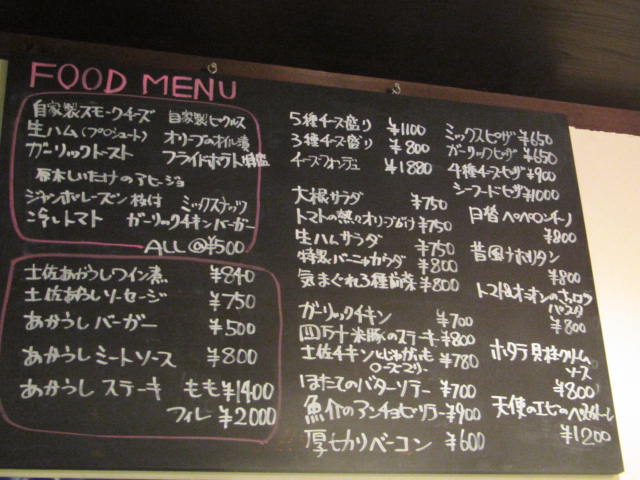 FOOD MENU
自家製スモークチーズ 自家製ピクルス
生ハム(プロシュート) オリーブのオイル漬
ガーリックトースト フライドポテト
原木しいたけのアヒージョ
ジャンボレーズン枝付 ミックスナッツ
冷しトマト ガーリックチキンバーガー
ALL@¥500
土佐あかうしワイン煮 ¥840
土佐あかうしソーセージ ¥750
あかうしバーガー ¥500
あかうしミートソース ¥800
あかうしステーキ もも¥1400
フィレ ¥2000
5種チーズ盛り ¥1100
3種チーズ盛り ¥800
チーズフォンデュ ¥1880
大根サラダ ¥750
トマトの熱々オリーブがけ ¥750
生ハムサラダ ¥750
特製バーニャカウダ ¥800
気まぐれ3種前菜 ¥800
ガーリックチキン ¥700
四万十米豚のステーキ ¥800
土佐チキンとじゃがいも ¥780
ローズマリー
ほたてのバターソテー ¥700
魚介のアンチョビソテー ¥900
厚切りベーコン ¥600
ミックスピザ ¥650
ガーリックピザ ¥650
4種チーズピザ ¥900
シーフードピザ ¥1000
日替ペペロンチーノ
¥800
昔風ナポリタン
¥800
トマト&オニオンの
パスタ
¥800
ホタテ貝柱クリーム
ソース
¥800
天使のエビの
¥1200